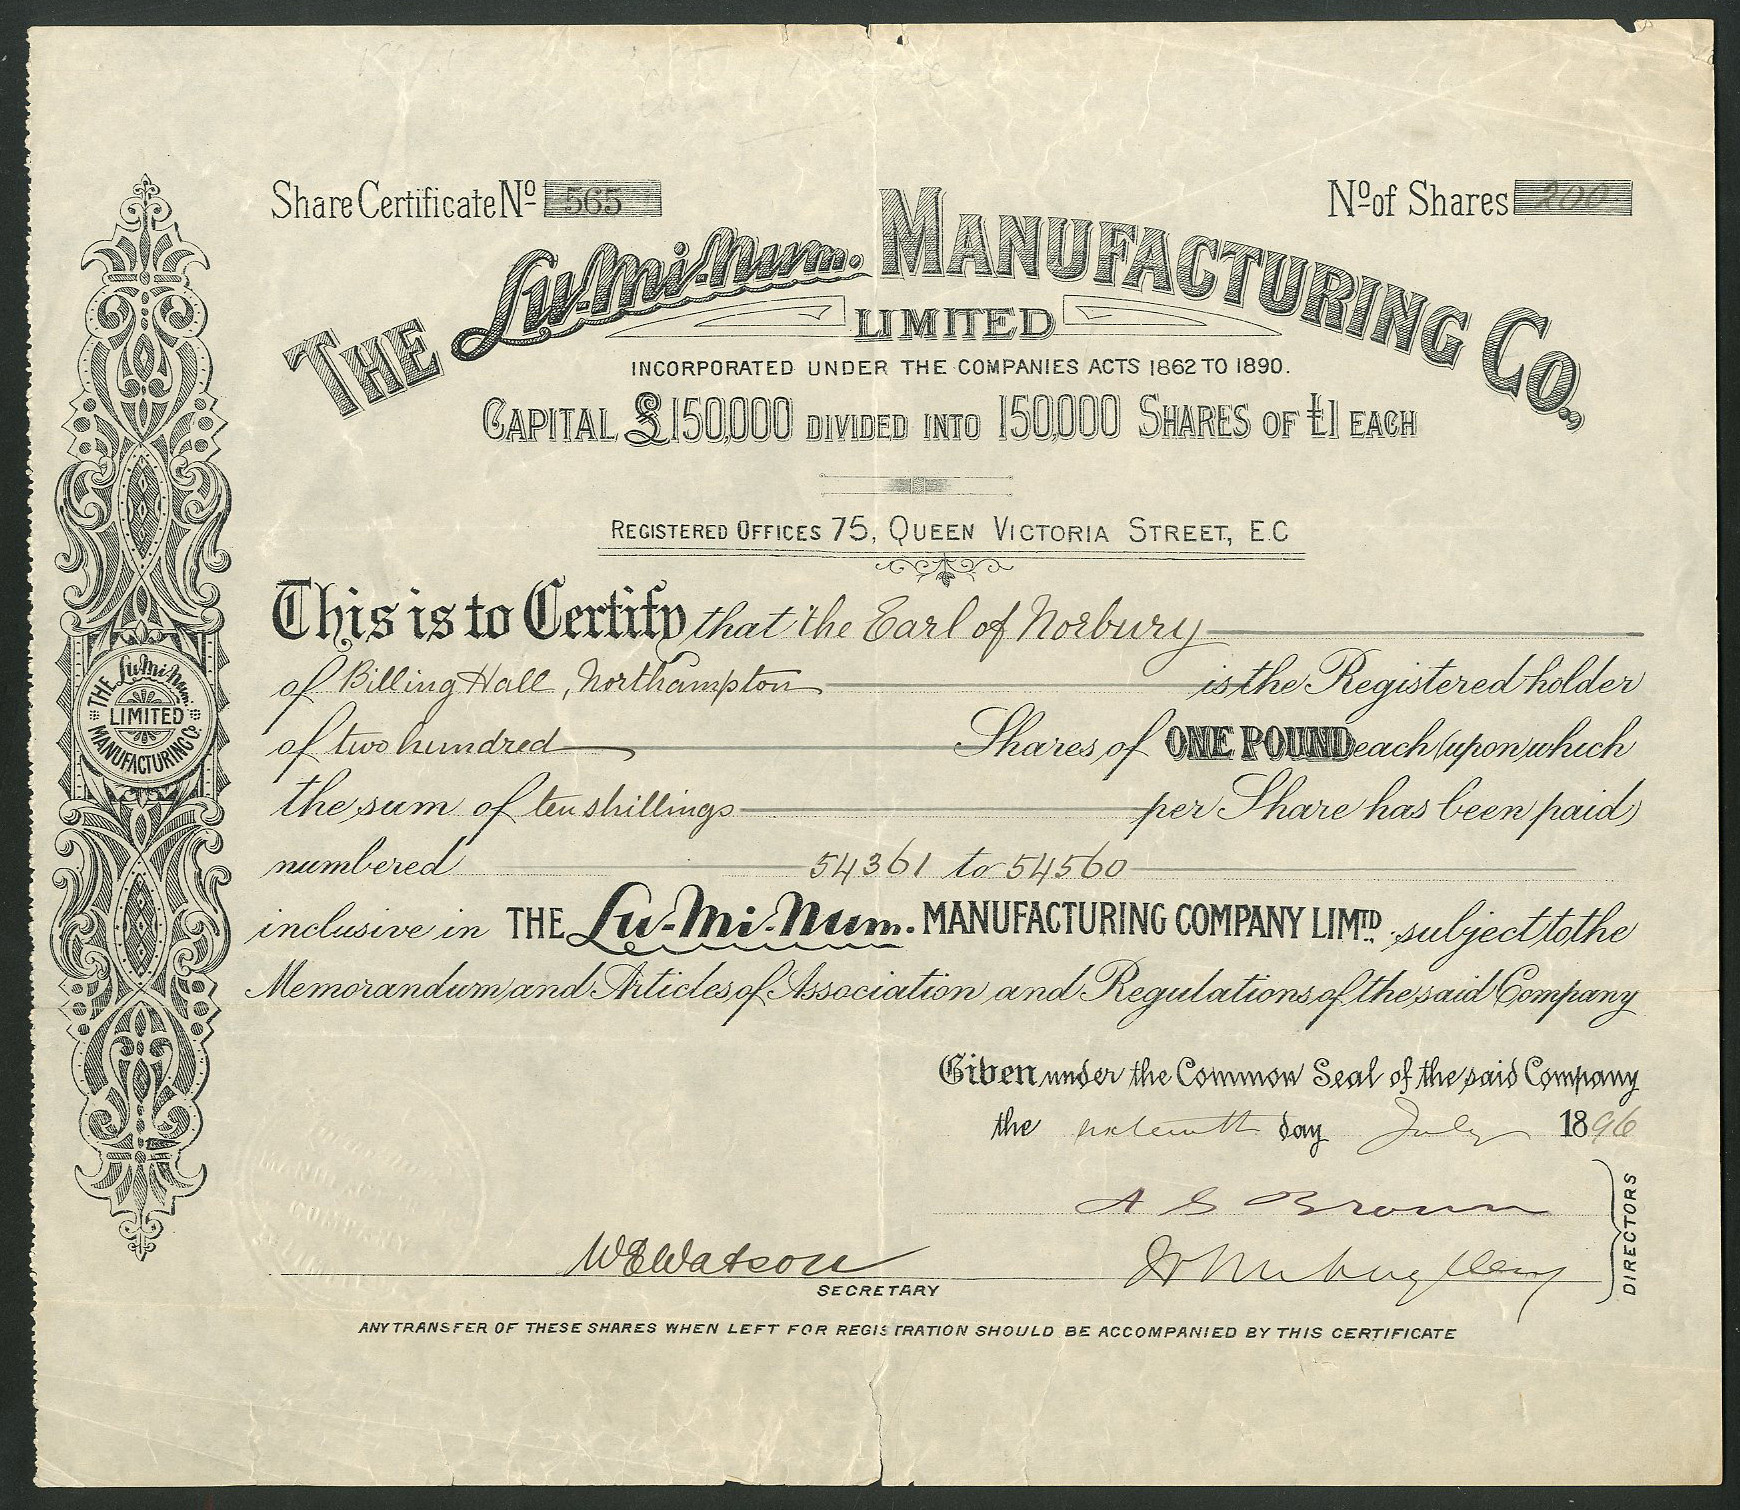 Share Certificate Nº 565
Nº of Shares 200
THE Lu-Mi-Num. MANUFACTURING CO.,
LIMITED
INCORPORATED UNDER THE COMPANIES ACTS 1862 TO 1890.
CAPITAL £150,000 DIVIDED INTO 150,000 SHARES OF £1 EACH
REGISTERED OFFICES 75, QUEEN VICTORIA STREET, E.C
This is to Certify that the Earl of Norbury
of Billing Hall, Northampton is the Registered holder
of two hundred Shares of ONE POUND each (upon which
the sum of ten shillings per Share has been paid)
numbered 54361 to 54560
inclusive in THE Lu-Mi-Num. MANUFACTURING COMPANY LIMTD. subject to the
Memorandum and Articles of Association and Regulations of the said Company
Given under the Common Seal of the said Company
the sixteenth day July 1896
A G Brown
W E Watson
SECRETARY
DIRECTORS
ANY TRANSFER OF THESE SHARES WHEN LEFT FOR REGISTRATION SHOULD BE ACCOMPANIED BY THIS CERTIFICATE
THE Lu-Mi-Num.
LIMITED
MANUFACTURING CO.
MANUFACTURING
COMPANY